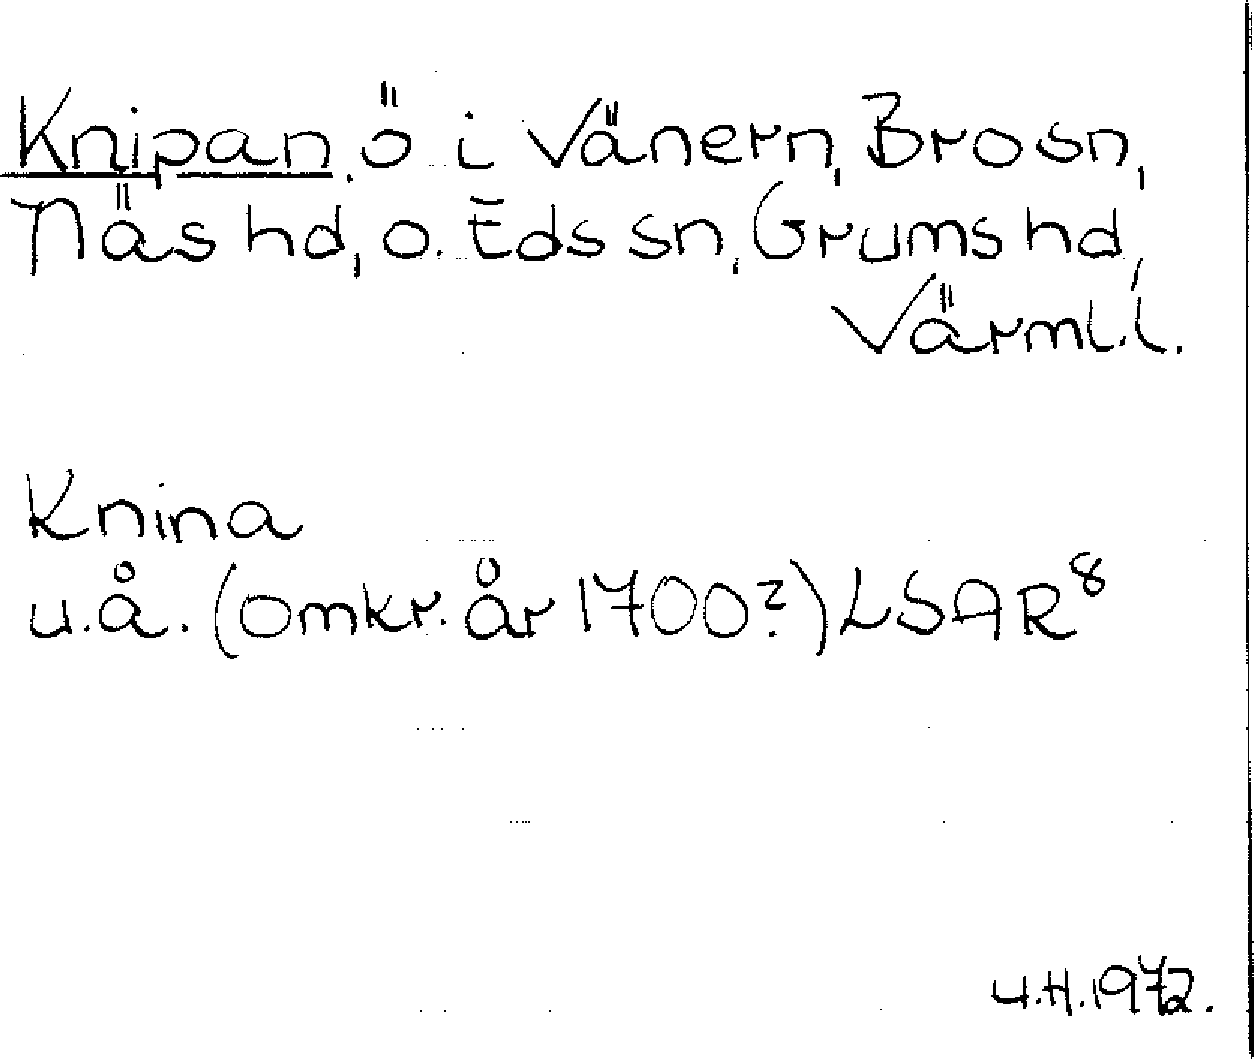 Knipan, ö i Vänern, Bro sn,
Näs hd, o. Eds sn, Grums hd,
Värml.l.
Knina
u.å. (omkr. år 1700?) LSAR⁸
U.H. 1972.